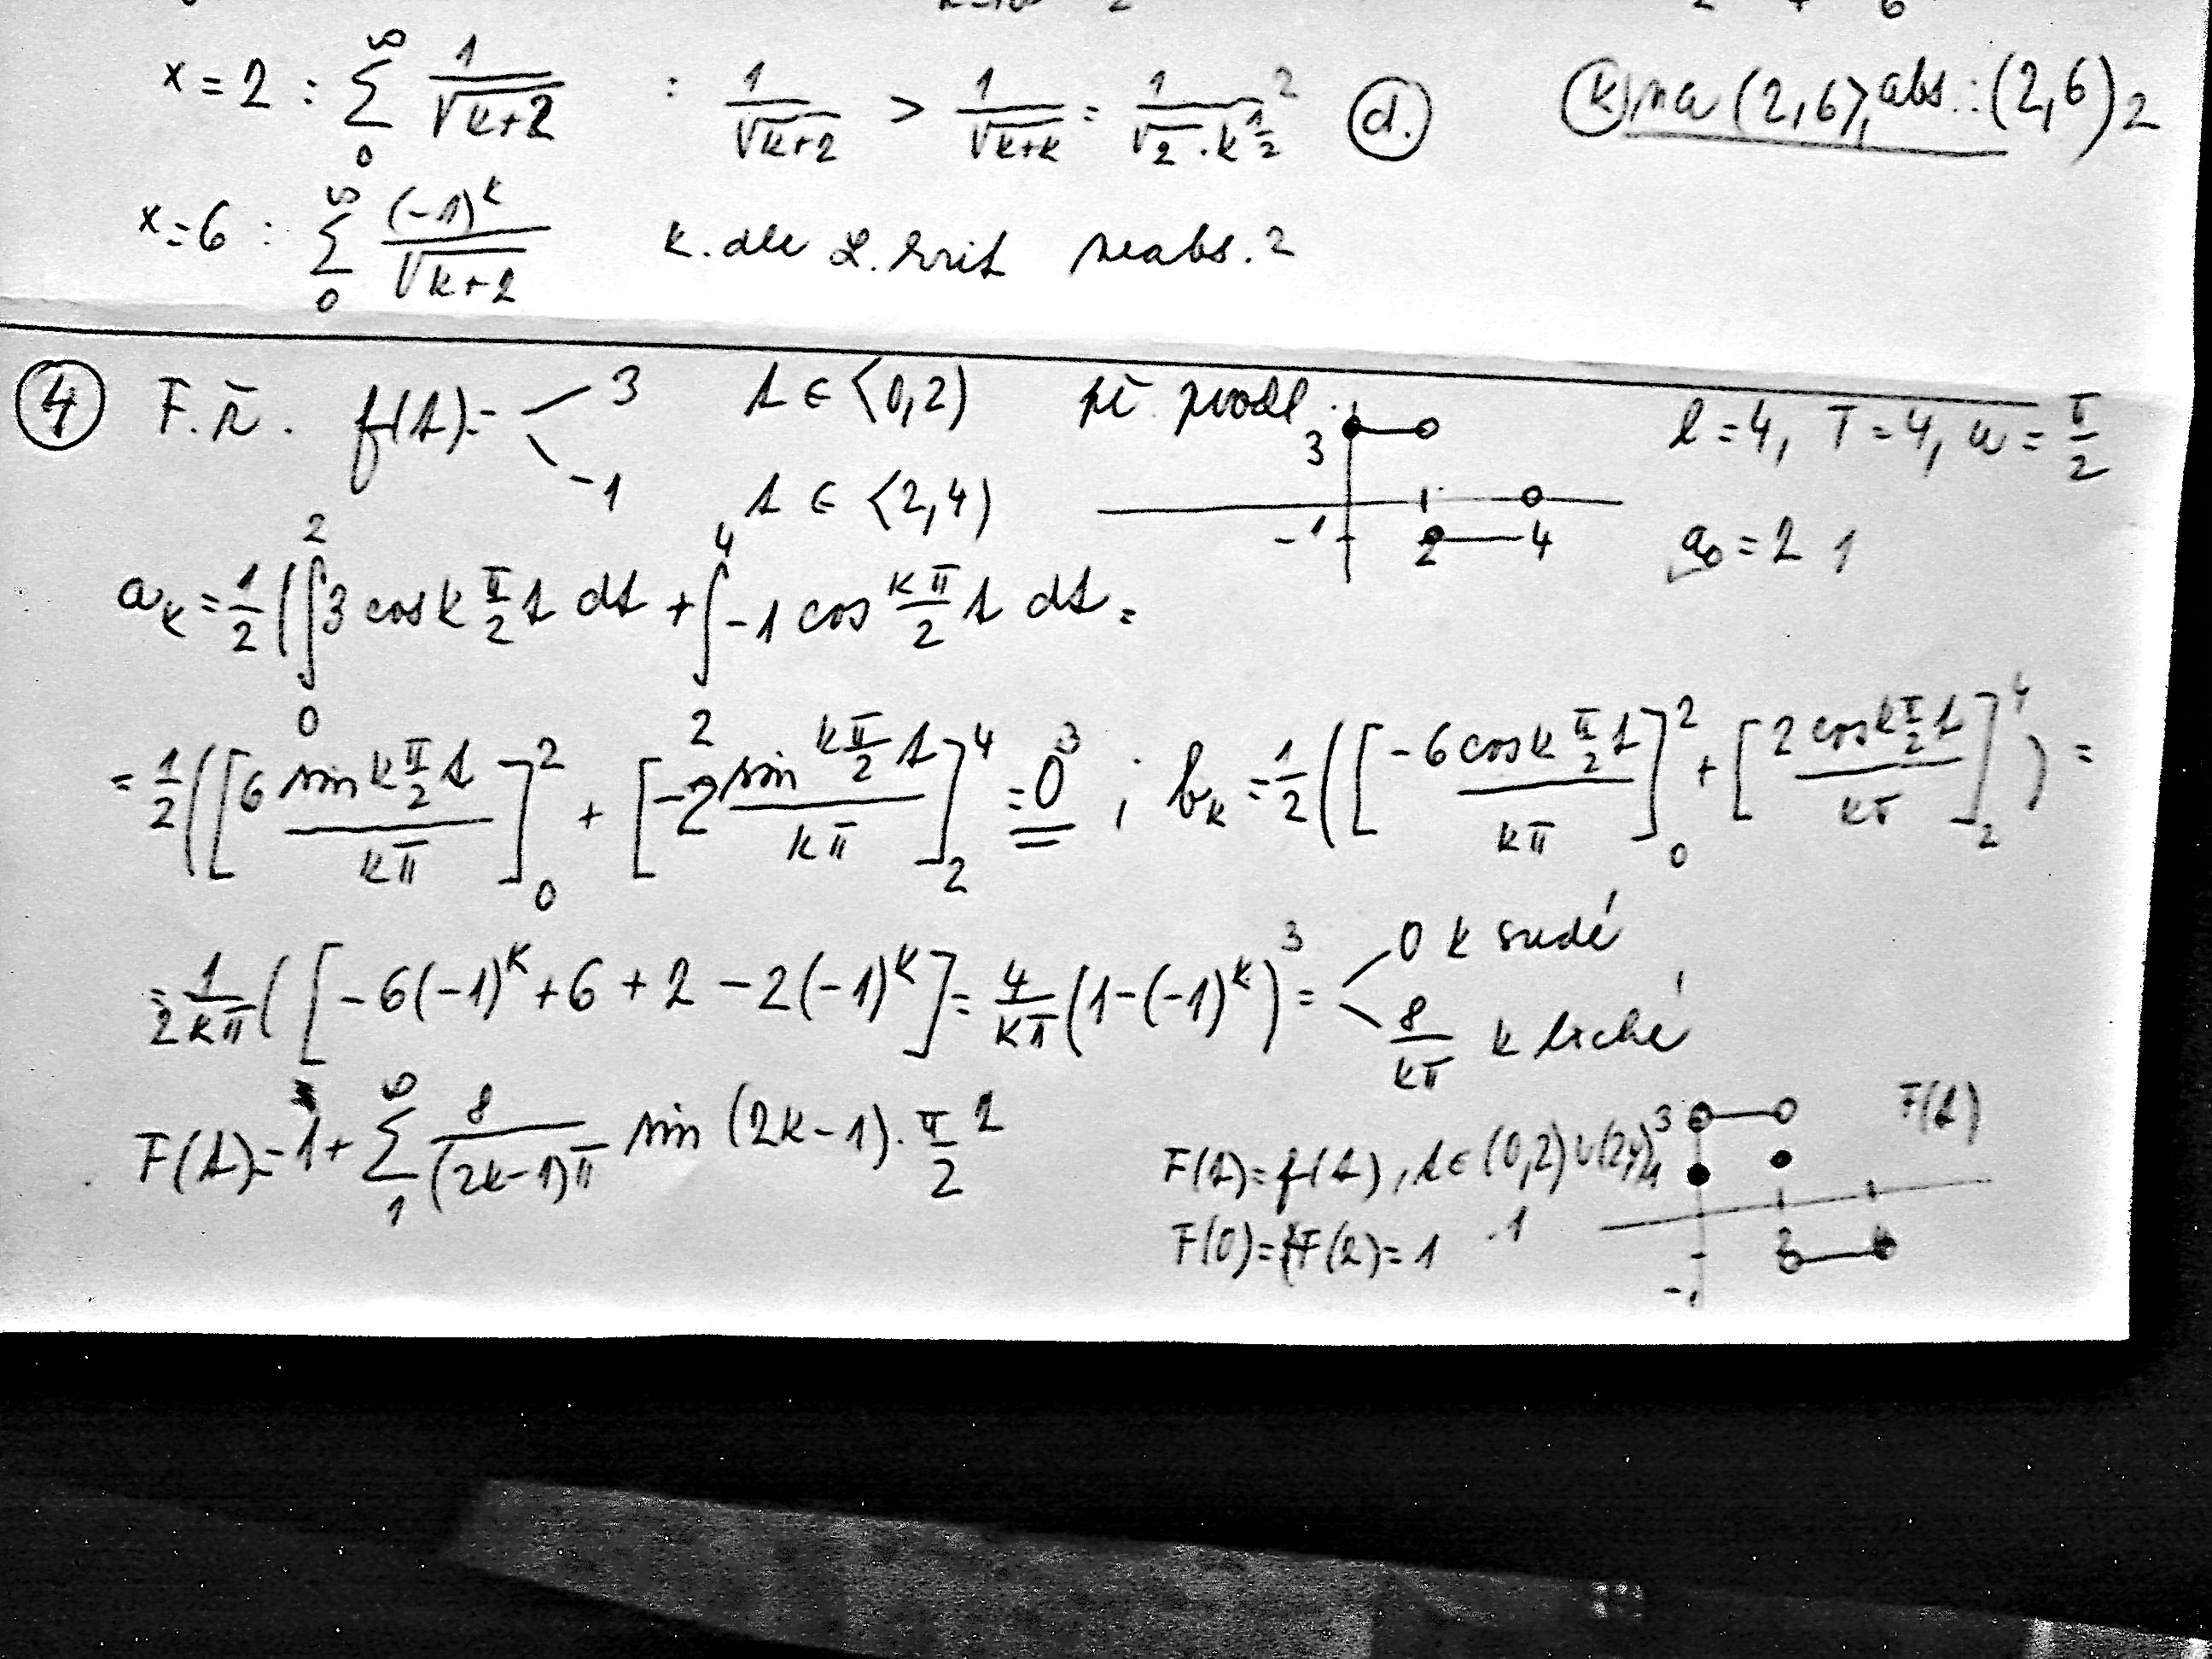 x=2 : ∑_0^∞ 1/√(k+2) : 1/√(k+2) > 1/√(k+k) = 1/(√2 · k^(1/2)) 2 (d.) (k) na (2,6⟩, abs.: (2,6) 2
x=6 : ∑_0^∞ (-1)^k/√(k+2) k. dle L. krit neabs. 2
(4) F.ř. f(t)= 3 t ∈ ⟨0,2) př. prodl. 3 l=4, T=4, ω=π/2
-1 t ∈ ⟨2,4) -1 2 4 a₀=2 1
a_k = 1/2 (∫_0^2 3 cos k π/2 t dt + ∫_2^4 -1 cos kπ/2 t dt =
= 1/2 ([6 sin k π/2 t / kπ]_0^2 + [-2 sin kπ/2 t / kπ]_2^4 = 0 3 ; b_k = 1/2 ([-6 cos k π/2 t / kπ]_0^2 + [2 cos k π/2 t / kπ]_2^4) =
= 1/2kπ ([-6(-1)^k + 6 + 2 - 2(-1)^k] = 4/kπ (1-(-1)^k) 3 = 0 k sudé
8/kπ k liché
F(t)=1+ ∑_1^∞ 8/((2k-1)π) sin (2k-1). π/2 2 3 F(t)
F(t)=f(t), t∈(0,2)∪(2,4) 1
F(0)=F(2)=1 1 2 4
-1